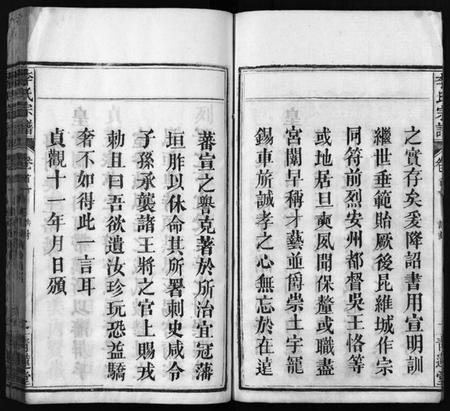 之實存矣爰降詔書用宣明訓
繼世垂範貽厥後昆維城作宗
同符前烈安州都督吳王恪等
或地居旦奭夙聞保釐或職盡
宮闈早稱才藝並爵崇土宇寵
錫車旂誠孝之心無忘於在遠
蕃宣之譽克著於所治宜冠藩
垣胙以休命其所署刺史咸令
子孫承襲諸王將之官上賜戎
勑且曰吾欲遺汝珍玩恐益驕
奢不如得此一言耳
貞觀十一年月日頒
李氏宗譜
卷
李氏宗譜
卷